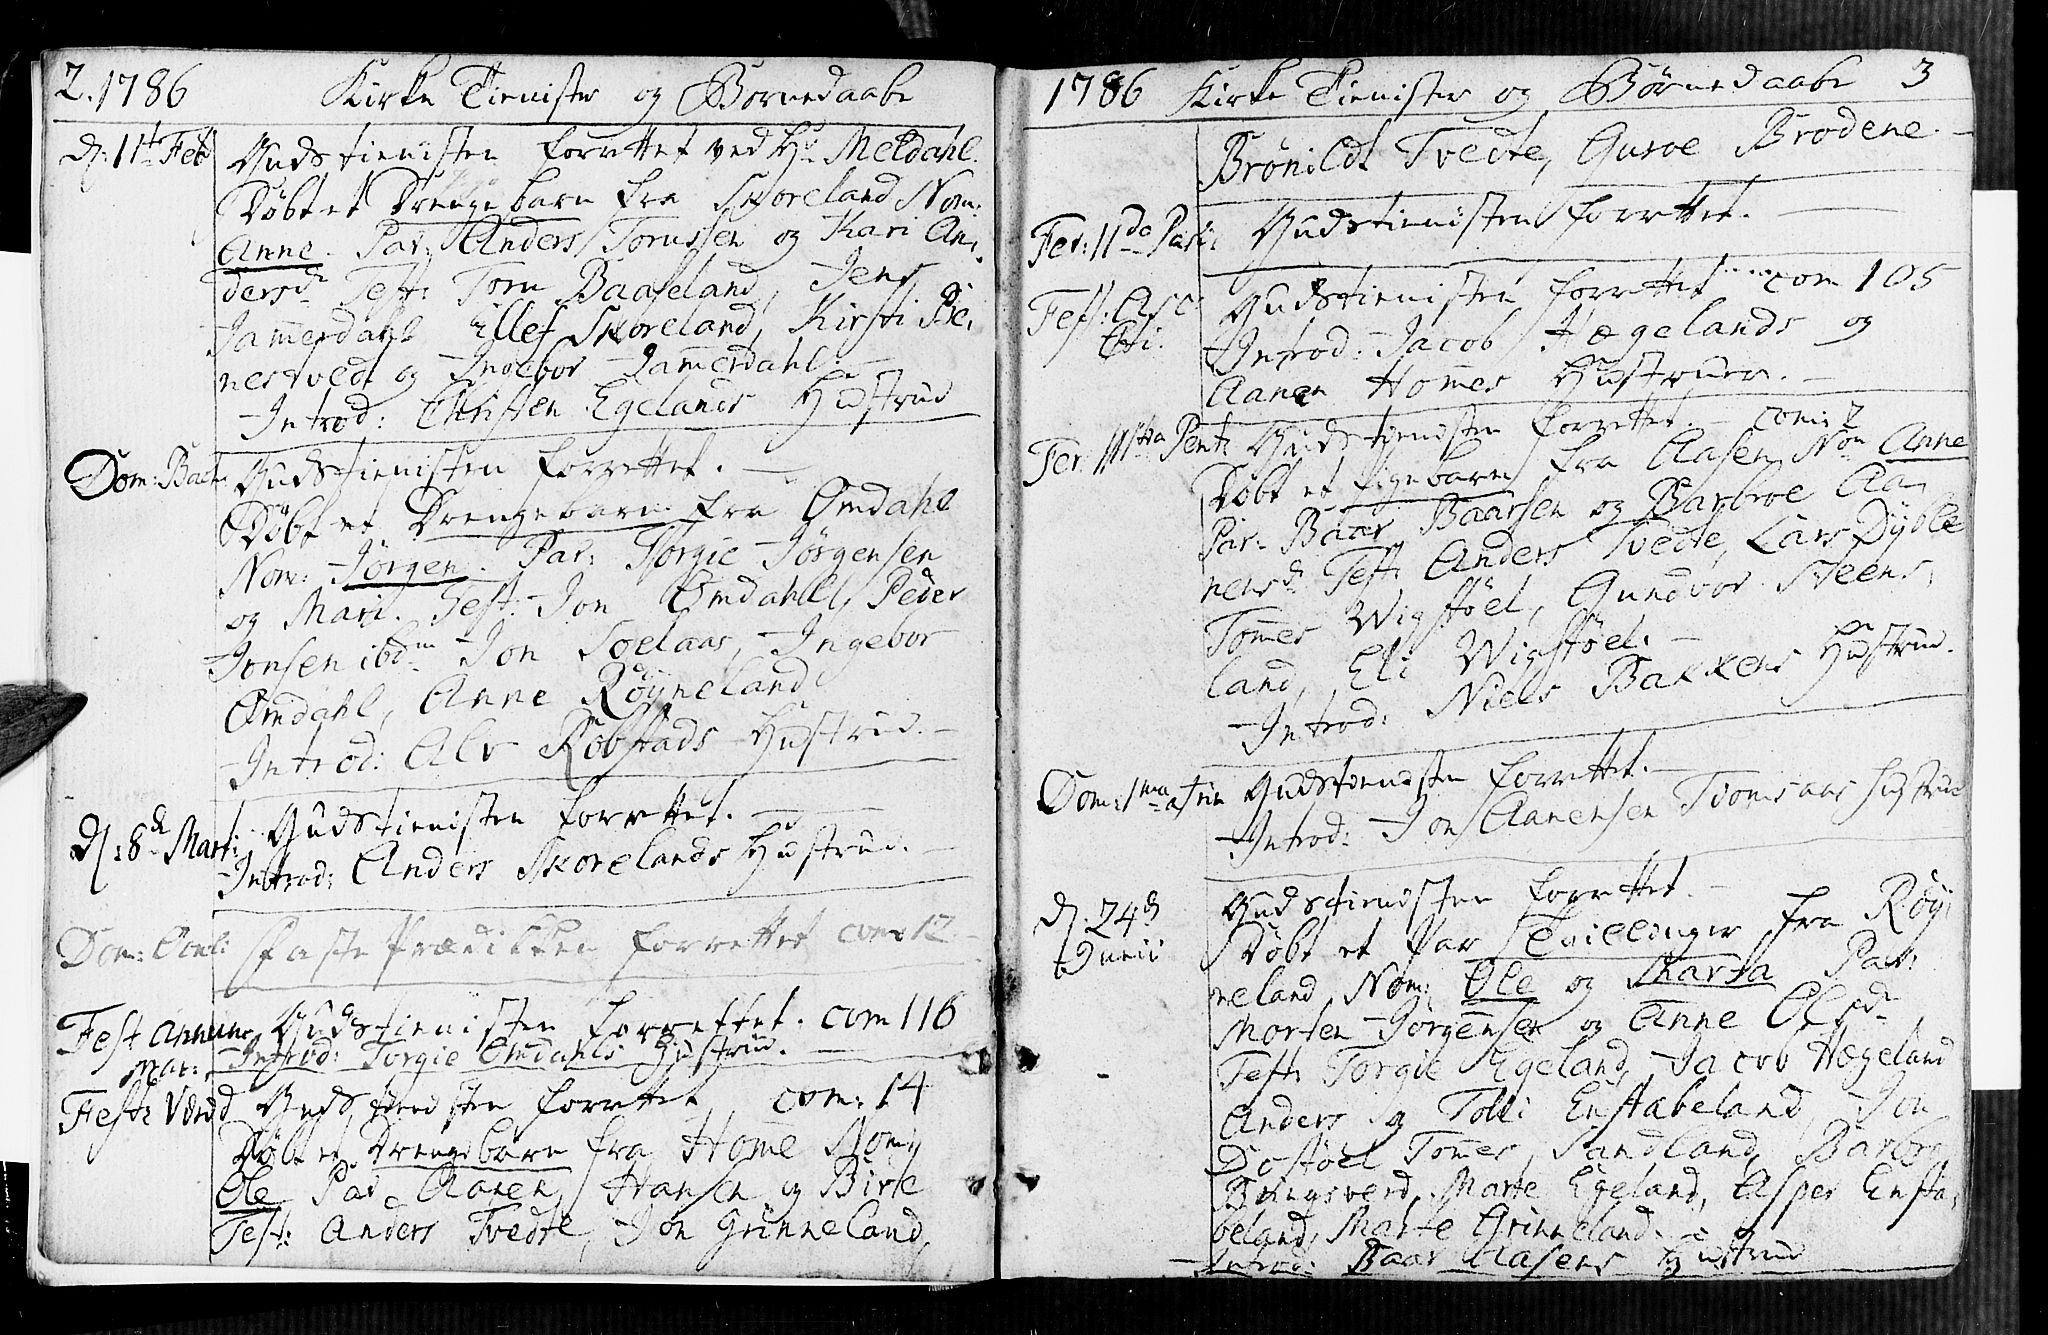 2. 1786 Kirke Tienister og Børnedaabe
d: 11te Feb Gudstienisten forrettet ved Hr Meldahl.
Døbt et Drengebarn fra Skoreland Nom:
Anne. Par: Anders Torussen og Kari An,
dersd. Test: Toru Baaseland, Jens
Jam̄erdahl Ellef Skoreland, Kirsti Be,
nestvedt og Ingebor Jam̄erdahl. —
Introd: Christen Egelands Hustrue
Dom: Gudstienisten forrettet. —
Døbt et Drengebarn fra Omdahl
Nom: Jørgen. Par: Torgie Jørgensen
og Mari. Test: Jon Omdahl, Peder
Jonsen ibdm Jon Soelaas, Ingebor
Omdahl, Anne Røyneland
Introd: Alv Robstads Hustrue. —
d: 8de Marti: Gudstienisten forrettet. —
Introd: Anders Skorelands Hustrue. —
Dom: Oculi: Faste Prædikken forrettet com: 12. —
Fest Annunc Gudstienisten forrettet. com 116
Mar: Introd: Torgie Omdahls Hustrue. —
Fest: Virid Gudstienisten forrettet, com: 14
Døbt et Drengebarn fra Hom̄e Nom:
Ole Par: Aanen Hansen og Birte
Test: Anders Tvedte, Jon Grunneland,
1786 Kirke Tienister og Børnedaabe 3
Brønildt Tvedte, Guroe Brodene. —
Fer: 11da Pasc: Gudstienisten forrettet. —
Fest: Asce Gudstienisten forrettet com 105
Introd: Jacob Hægelands og
Aanen Hom̄es Hustruer. —
Fer: Pent: Gudstienisten forrettet. — com: 2
Døbt et Pigebarn fra Aasen Nom Anne
Par: Baar Baarsen og Barbroe Aa,
nensd. Test: Anders Tvedte, Lars Dyble
Tom̄es Wigstøel, Gundvor Steens,
land, Eli Wigstøel. —
Introd: Niels Bakkens Hustrue.
Dom: 1ma a Trin Gudstienisten forrettet. —
Introd: Jon Aanensen Tiomsaas Hustrue
d. 24de Gudstienisten forrettet. —
Junii Døbt et Par Tvillinger fra Røy,
neland Nom: Ole og Marta Par:
Morten Jørgensen og Anne Olsd.
Test: Torgie Egeland, Jacob Hægeland
Anders og Tolli Enstabeland, Jon
Dostøel Tom̄es Sandland, Barbro
Bringsverd, Marte Egeland, Asper Ensta,
beland, Marte Grinneland. —
Introd: Baar Aasens Hustrue